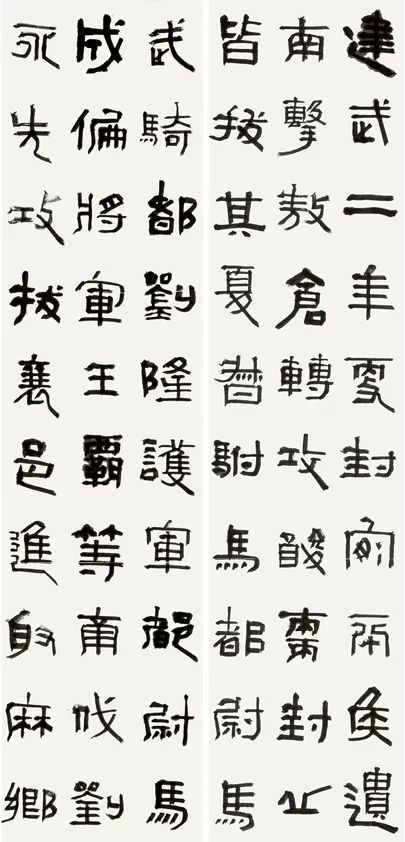 建武二年更封安平侯遣
南擊敖倉轉攻酸棗封丘
皆拔其夏督駙馬都尉馬
武騎都劉隆護軍都尉馬
成偏將軍王霸等南伐劉
永先攻拔襄邑進取麻鄉